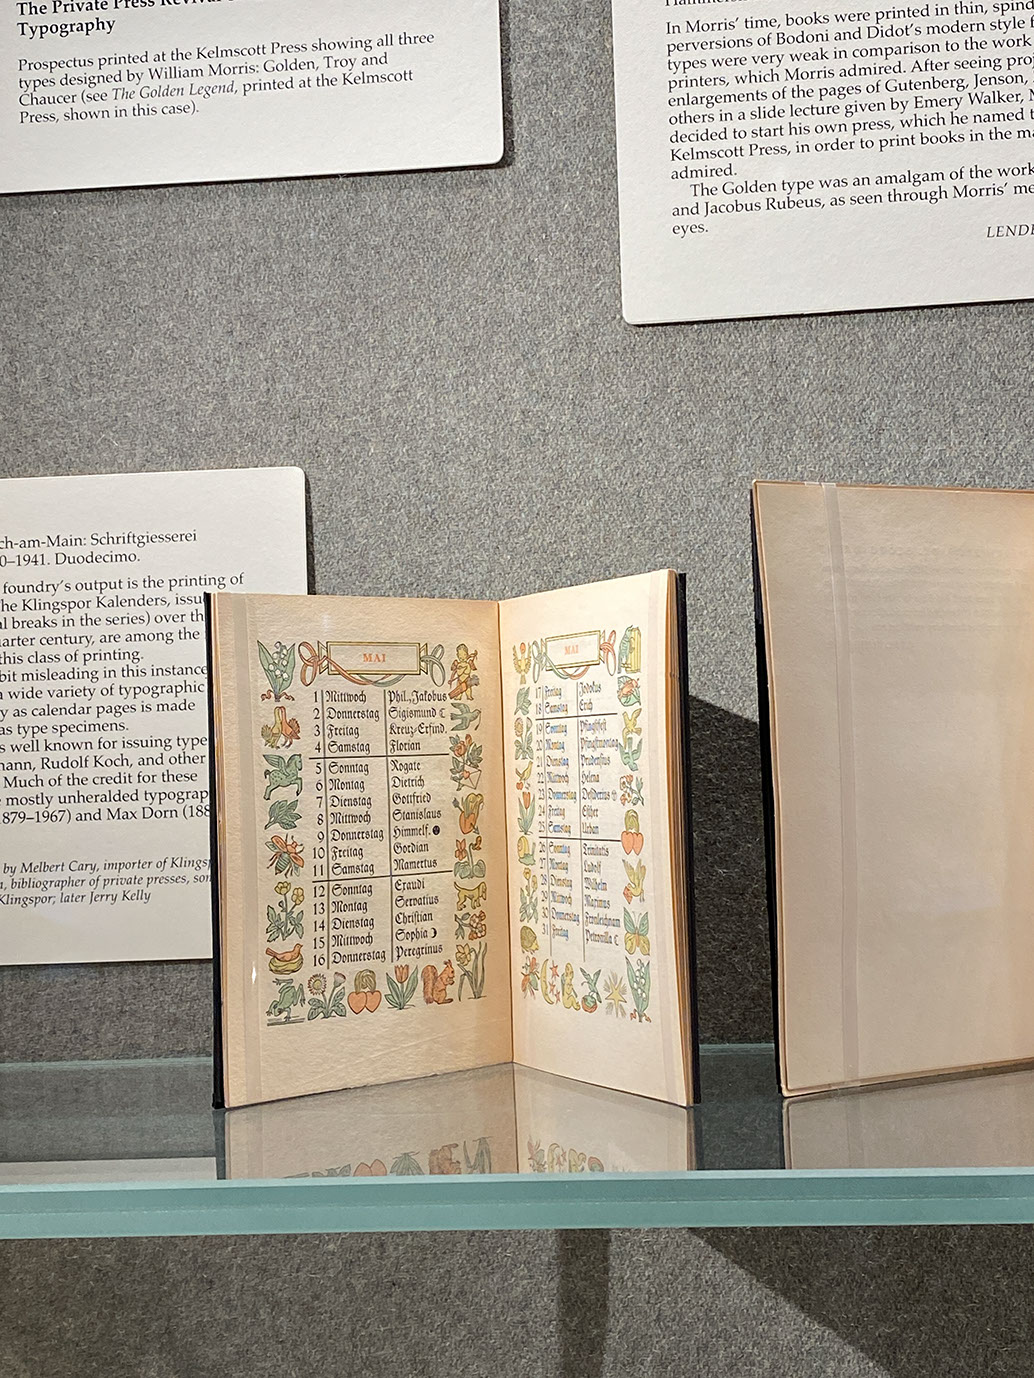 The Private Press Revival
Typography
Prospectus printed at the Kelmscott Press showing all three
types designed by William Morris: Golden, Troy and
Chaucer (see The Golden Legend, printed at the Kelmscott
Press, shown in this case).
In Morris’ time, books were printed in thin, spind
perversions of Bodoni and Didot’s modern style f
types were very weak in comparison to the work
printers, which Morris admired. After seeing proj
enlargements of the pages of Gutenberg, Jenson,
others in a slide lecture given by Emery Walker, M
decided to start his own press, which he named t
Kelmscott Press, in order to print books in the ma
admired.
The Golden type was an amalgam of the work
and Jacobus Rubeus, as seen through Morris’ me
eyes.
LENDE
ch-am-Main: Schriftgiesserei
0–1941. Duodecimo.
foundry’s output is the printing of
he Klingspor Kalenders, issu
al breaks in the series) over th
uarter century, are among the
this class of printing.
bit misleading in this instance
a wide variety of typographic
y as calendar pages is made
as type specimens.
s well known for issuing type
mann, Rudolf Koch, and other
Much of the credit for these
mostly unheralded typograp
879–1967) and Max Dorn (188
by Melbert Cary, importer of Klingsp
, bibliographer of private presses, som
Klingspor; later Jerry Kelly
MAI
1 Mittwoch Phil., Jakobus
2 Donnerstag Sigismund ☾
3 Freitag Kreuz-Erfind.
4 Samstag Florian
5 Sonntag Rogate
6 Montag Dietrich
7 Dienstag Gottfried
8 Mittwoch Stanislaus
9 Donnerstag Himmelf. ☻
10 Freitag Gordian
11 Samstag Mamertus
12 Sonntag Exaudi
13 Montag Servatius
14 Dienstag Christian
15 Mittwoch Sophia ☽
16 Donnerstag Peregrinus
MAI
17 Freitag Jodokus
18 Samstag Erich
19 Sonntag Pfingstfest
20 Montag Pfingstmontag
21 Dienstag Prudensius
22 Mittwoch Helena
23 Donnerstag Desiderius
24 Freitag Esther
25 Samstag Urban
26 Sonntag Trinitatis
27 Montag Ludolf
28 Dienstag Wilhelm
29 Mittwoch Maximus
30 Donnerstag Fronleichnam
31 Freitag Petronilla ☾